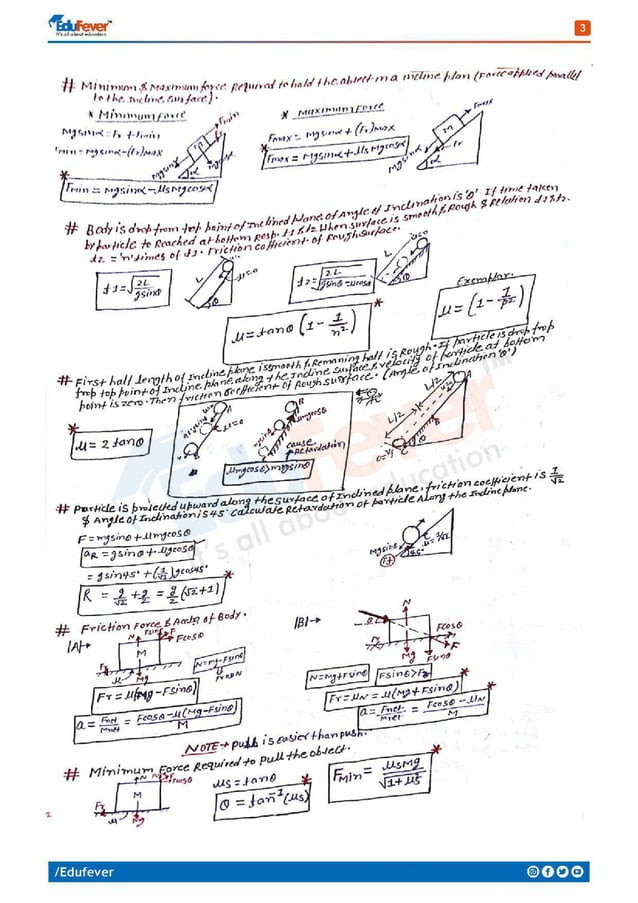 EduFever
It's all about education
3
# Minimum & Maximum force Required to hold the object in a incline plan (Force applied parallel
to the Incline surface).
* Minimum Force
* Maximum Force
Mgsinα = Fr + Fmin
Fmin = Mgsinα - (Fr)max
* Fmin = Mgsinα - μsMgcosα
Fmin
M
Mgsinα
Mgcosα
α
Fmax = Mgsinα + (Fr)max
* Fmax = Mgsinα + μsMgcosα
Fmax
M
Fr
Mgsinα
α
# Body is drop from top point of Inclined Plane of Angle of Inclination is 'θ'. If time taken
by particle to Reached at bottom Resp. t1 & t2 When surface is smooth & Rough & Relation t1 & t2.
t2 = 'n' times of t1. Friction coefficient of Rough surface.
t1 = √(2L/gsinθ)
L
μ=0
θ
t2 = √(2L/gsinθ-μcosθ)
L
θ
* μ = tanθ (1 - 1/n²)
Exemplar.
μ = (1 - 1/p²)
# First half length of Incline plane is smooth & Remaining half is Rough. If particle is drop from
top point of Incline plane along the Incline surface & velocity of particle at bottom
point is zero. Then friction coefficient of Rough surface. (Angle of Inclination 'θ')
* μ = 2tanθ
A
μ=0
B
B
μmgcosθ
C
cause
Retardation
μmgcosθ>mgsinθ
L/2
L/2
A
B
C
θ
# Particle is projected upward along the surface of Inclined plane. friction coefficient is 1/√2
& Angle of Inclination is 45° Calculate Retardation of particle Along the Incline plane.
F = mgsinθ + μmgcosθ
aR = gsinθ + μgcosθ
= gsin45° + (1/√2)gcos45°
R = g/√2 + g/2 = g/2 (√2+1) *
Mgsinθ
Fr
45°
μ=1/√2
# Friction Force & Accln of Body.
|A|→
N
Fsinθ
F
Fcosθ
M
Fr
μ
Mg
N=Mg-Fsinθ
Fr=μN
Fr = μ(Mg-Fsinθ) *
a = Fnet/Mnet = Fcosθ - μ(Mg-Fsinθ)/M *
|B|→
N
Fcosθ
F
Mg
Fsinθ
N=Mg+Fsinθ
Fr = μN = μ(Mg+Fsinθ) *
a = Fnet/Mnet = Fcosθ - μN/M *
NOTE → Pull is easier than push.
# Minimum Force Required to Pull the object.
N
M
Fr
μ
Mg
μs = tanθ
θ = tan⁻¹(μs) *
Fmin = μsMg/√(1+μs²) *
/Edufever